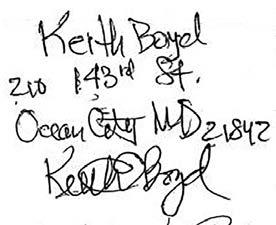 Keith Boyd
210 143rd St.
Ocean City MD 21842
Keith Boyd